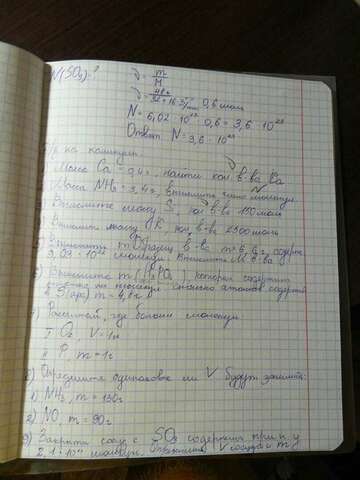 N(SO₃)-?
ν = m/M
ν = 48г/32+16·3 г/моль 0,6 моль
N = 6,02 · 10²³ · 0,6 = 3,6 · 10²³
Ответ N = 3,6 · 10²³
на
Масса Ca = 0,4г, найти кол в-ва Ca
Масса NH₃ = 3,4г, вычислите число молекул
Вычислите массу S, кол в-ва 150 моль
Вычислить массу K, кол в-ва 2500 моль
m образец в-ва m = 6,6г, содерж
9,03 · 10²² молекул. Вычислить M в-ва
Вычислите m (H₃PO₄), которая содержит
столько молекул сколько атомов содерж
в m = 4,8г
Рассчитай, где больше молекул
I O₂, V = 1л
II P, m = 1г
Определите одинаковые ли V будут занимать:
1) NH₃, m = 130г
2) NO, m = 90г
9) Закрыта сосуд с SO₃ содержит при н.у.
2,1 · молекул. V сосуда и m